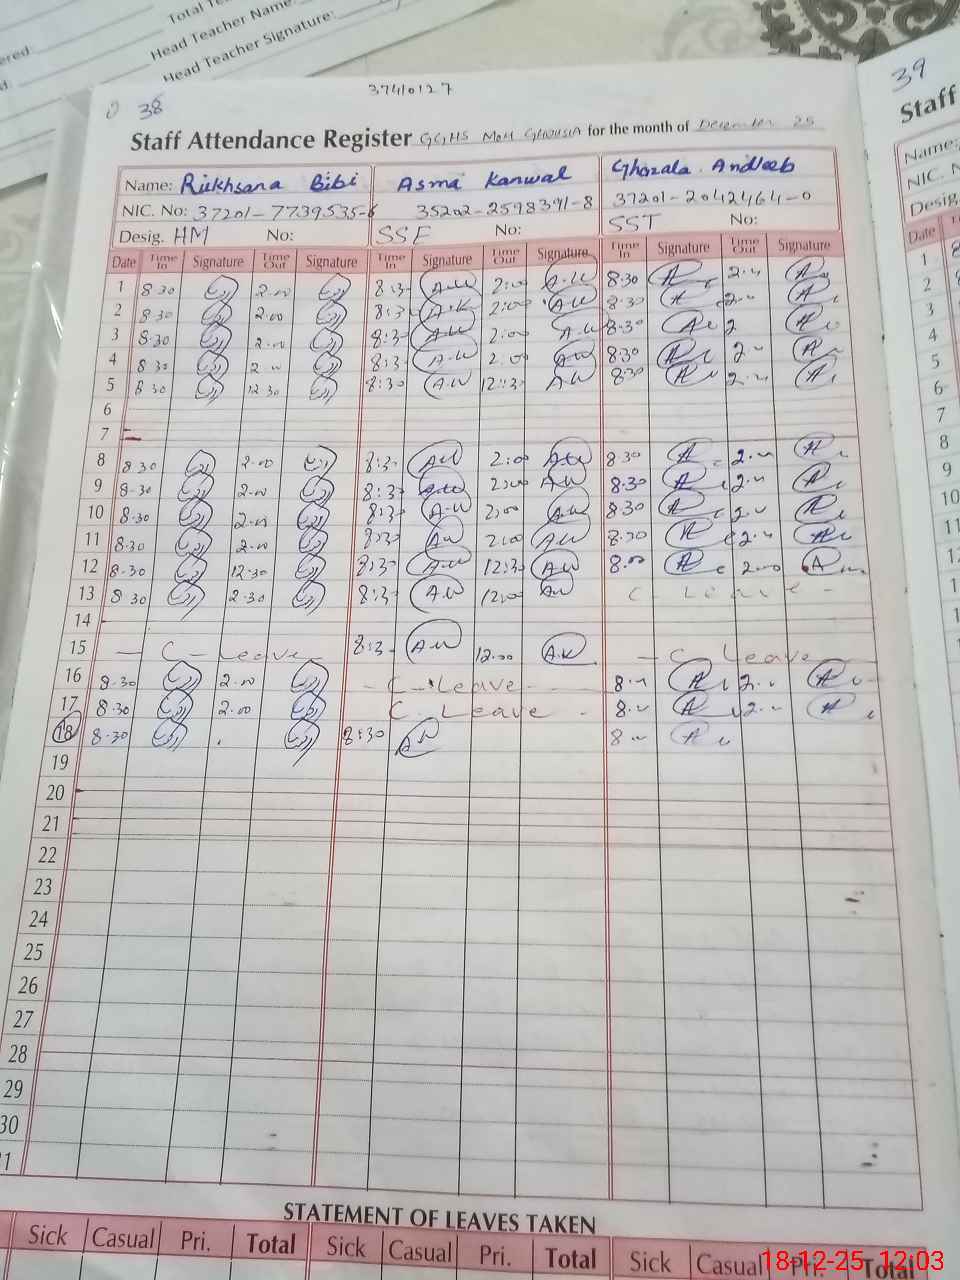 Total Te
Head Teacher Name:
Head Teacher Signature:
ered:
37410127
38
39
Staff Attendance Register GGHS MOH GHOUSIA for the month of December 25
Staff
Name: Rukhsana Bibi Asma Kanwal Ghazala Andleeb
Name:
NIC. No: 37201-7739535-6 35202-2598391-8 37201-2042464-0
NIC. N
Desig. HM No: SSE No: SST No:
Desig.
Date Time In Signature Time Out Signature Time In Signature Time Out Signature Time In Signature Time Out Signature
Date
1 8 30 2.00 8:3 A.W 2:00 A.W 8:30 A 2. A
2 8 30 2.00 8:3 A.K 2:00 A.W 8:30 A 2. A
3 8.30 2.00 8:3 A.W 2:00 A.W 8:30 A 2 A
4 8 30 2 8:3 A.W 2:00 A.W 8:30 A 2 A
5 8 30 12 30 8:30 A.W 12:3 A.W 8:30 A 2. A
6
7
8 8 30 2.00 8:3 A.W 2:00 A.W 8.30 A 2. A
9 8.30 2.00 8:3 A.W 2:00 A.W 8.30 A 2. A
10 8.30 2.00 8:3 A.W 2:00 A.W 8.30 A 2. A
11 8.30 2.00 8:30 A.W 2:00 A.W 8.30 A 2. A
12 8.30 12.30 8:3 A.W 12:3 A.W 8.00 A 2.00 A
13 8.30 2.30 8:3 A.W 12:00 A.W C - Leave -
14
15 - C - Leave - 8:3 A.W 12.00 A.K - C Leave
16 8.30 2.00 - C - Leave - 8. A 2. A
17 8.30 2.00 C. Leave - 8. A 2. A
18 8.30 8:30 A.W 8 A
19
20
21
22
23
24
25
26
27
28
29
30
1
1
2
3
4
5
6
7
8
9
10
11
12
13
STATEMENT OF LEAVES TAKEN
Sick Casual Pri. Total Sick Casual Pri. Total Sick Casual Pri. Total
18-12-25 12:03